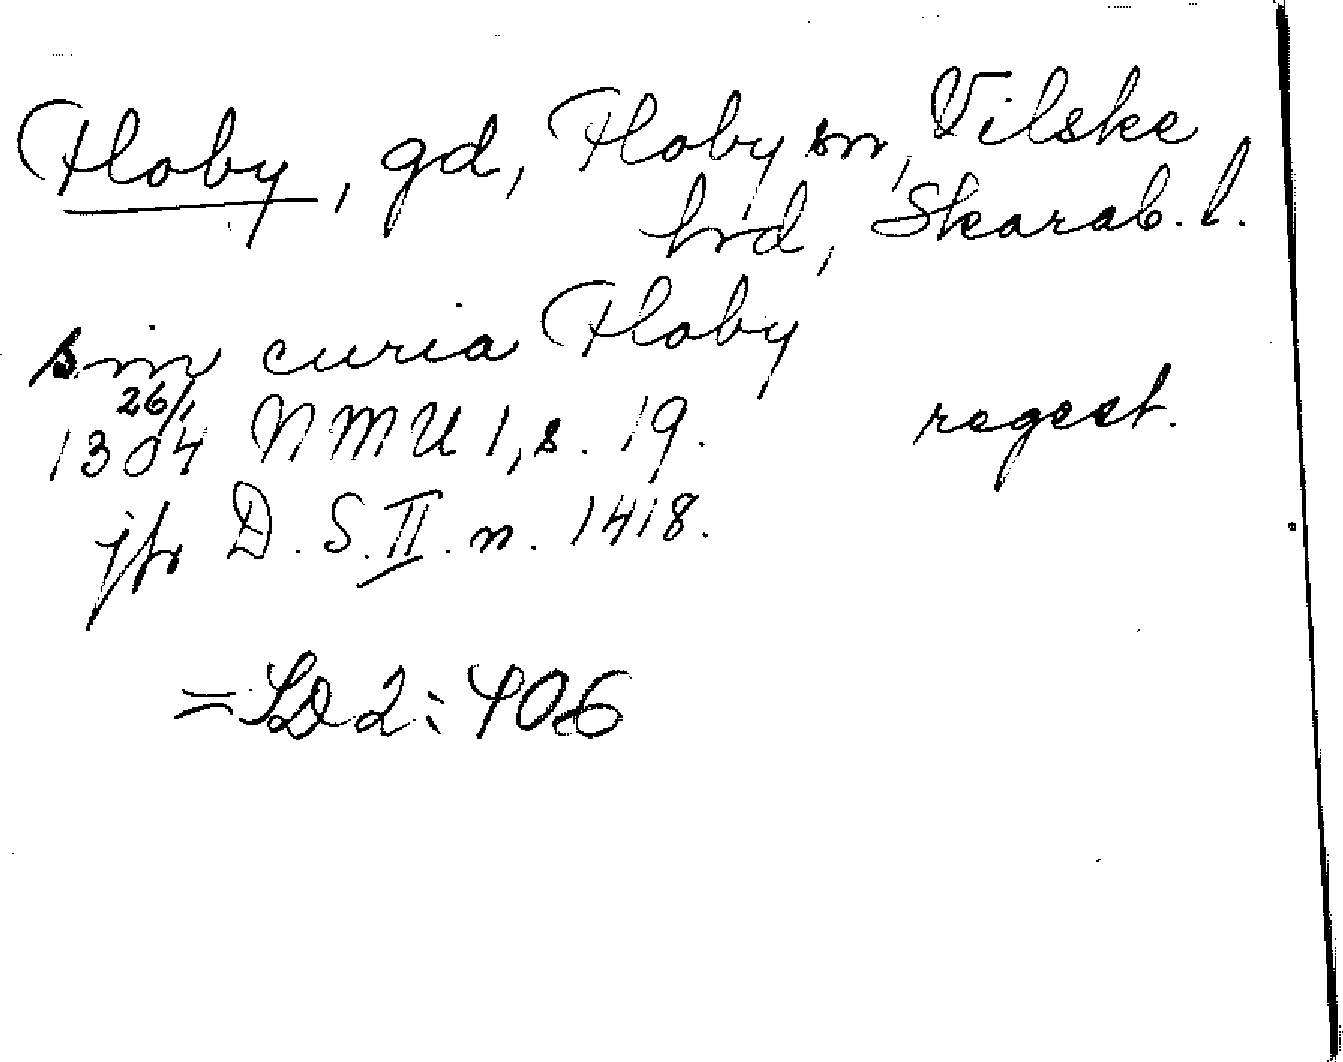 Floby, gd, Floby sn, Vilske
hrd, Skarab. l.
sin curia Floby
26/4
1304 NMU 1, s. 19. regest.
jfr D. S. II. n. 1418.
= SD 2: 406